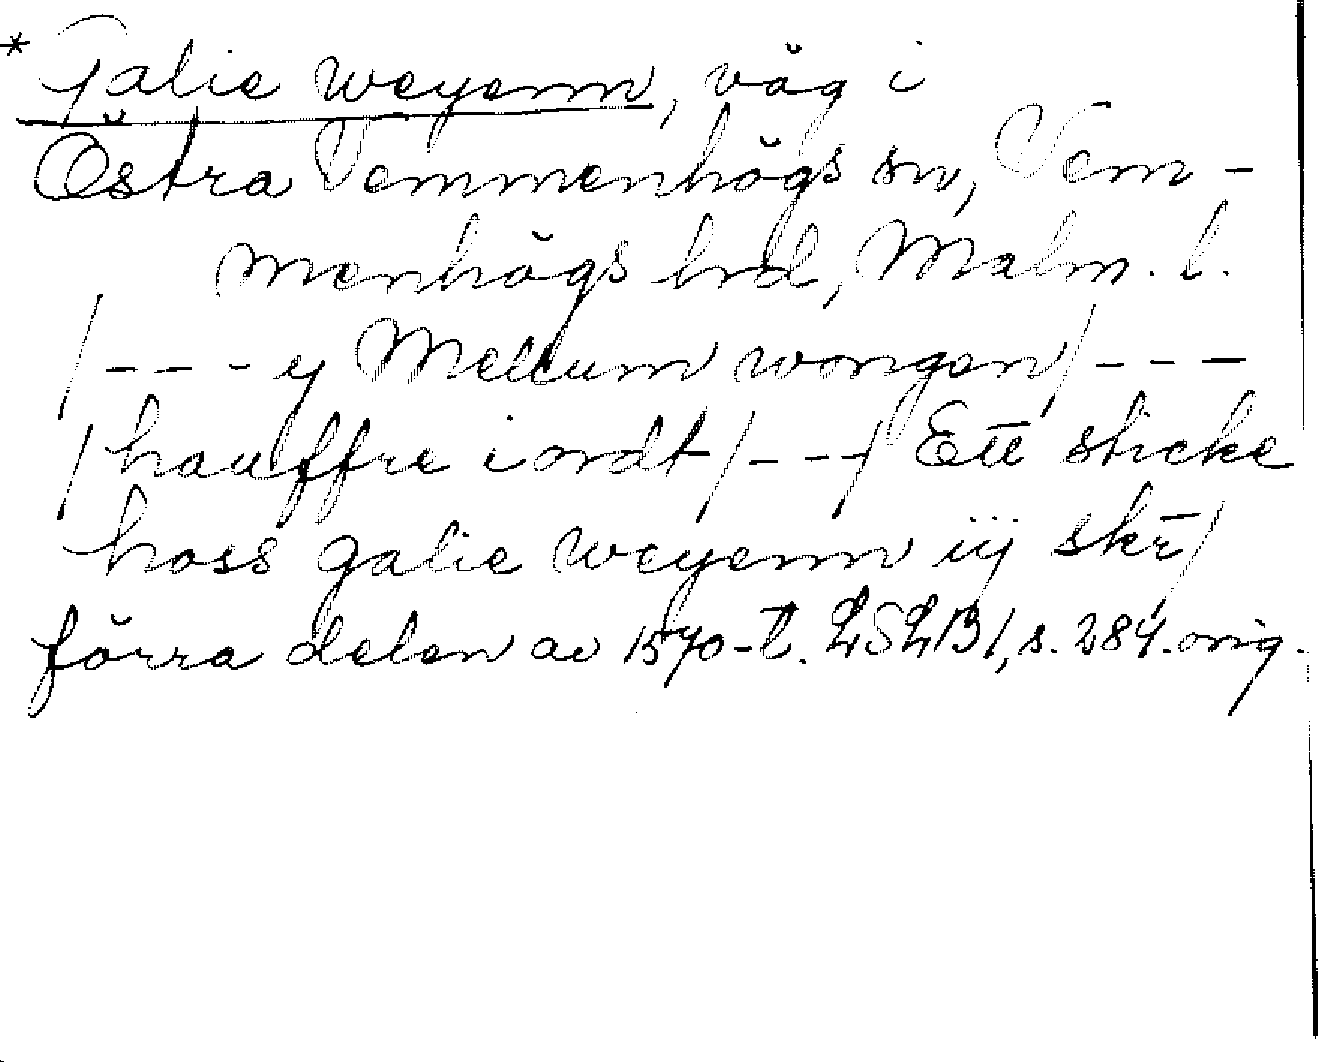 * Galie weyenn, väg i
Östra Vemmenhögs sn, Vem-
menhögs hrd, Malm. l.
/---y Mellum wongen/---
/hauffre iordt/---/ Ett sticke
hoss galie weyenn iij skr̄/
förra delen av 1570-t. LSLB1, s. 284. orig.